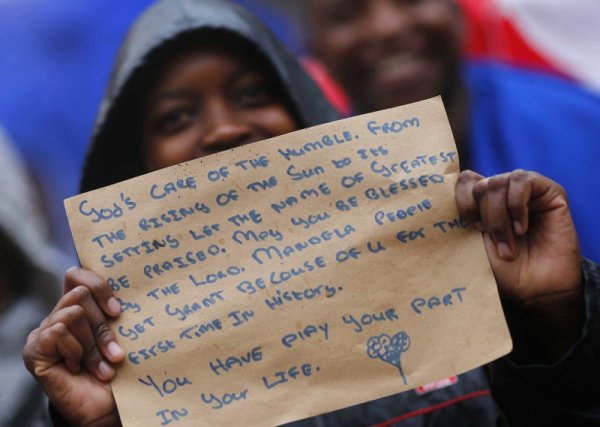 God's Care of the Humble. From
the rising of the Sun to its
setting let the name of Greatest
be praised. May you be blessed
by the Lord. Mandela people
get grant becouse of u for the
first time in history.
You have play your part
in your life.